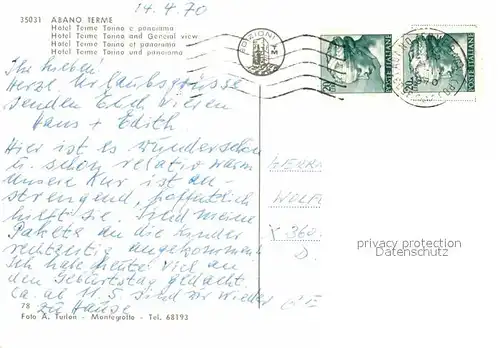 14.4.70
35031 ABANO TERME
Hotel Terme Torino e panorama
Hotel Terme Torino and General view
Hotel Terme Torino et panorama
Hotel Terme Torino und panorama
EDIZIONI
T M
POSTE ITALIANE
POSTE ITALIANE
Ihr Lieben!
Herzl. Urlaubsgrüsse
senden Euch vielen
Hans + Edith.
Hier ist es wunderschön
u. schon relativ warm
Unsere Kur ist an-
strengend, hoffentlich
hilft sie. Sind meine
Pakete an die Kinder
rechtzeitig angekommen?
Ich habe heute viel an
den Geburtstag gedacht.
Ca. ab 11.5. sind wir wieder
zu Hause
HENR
WOLF
360
D.
privacy protection
Datenschutz
78
Foto A. Turlon - Montegrotto - Tel. 68193